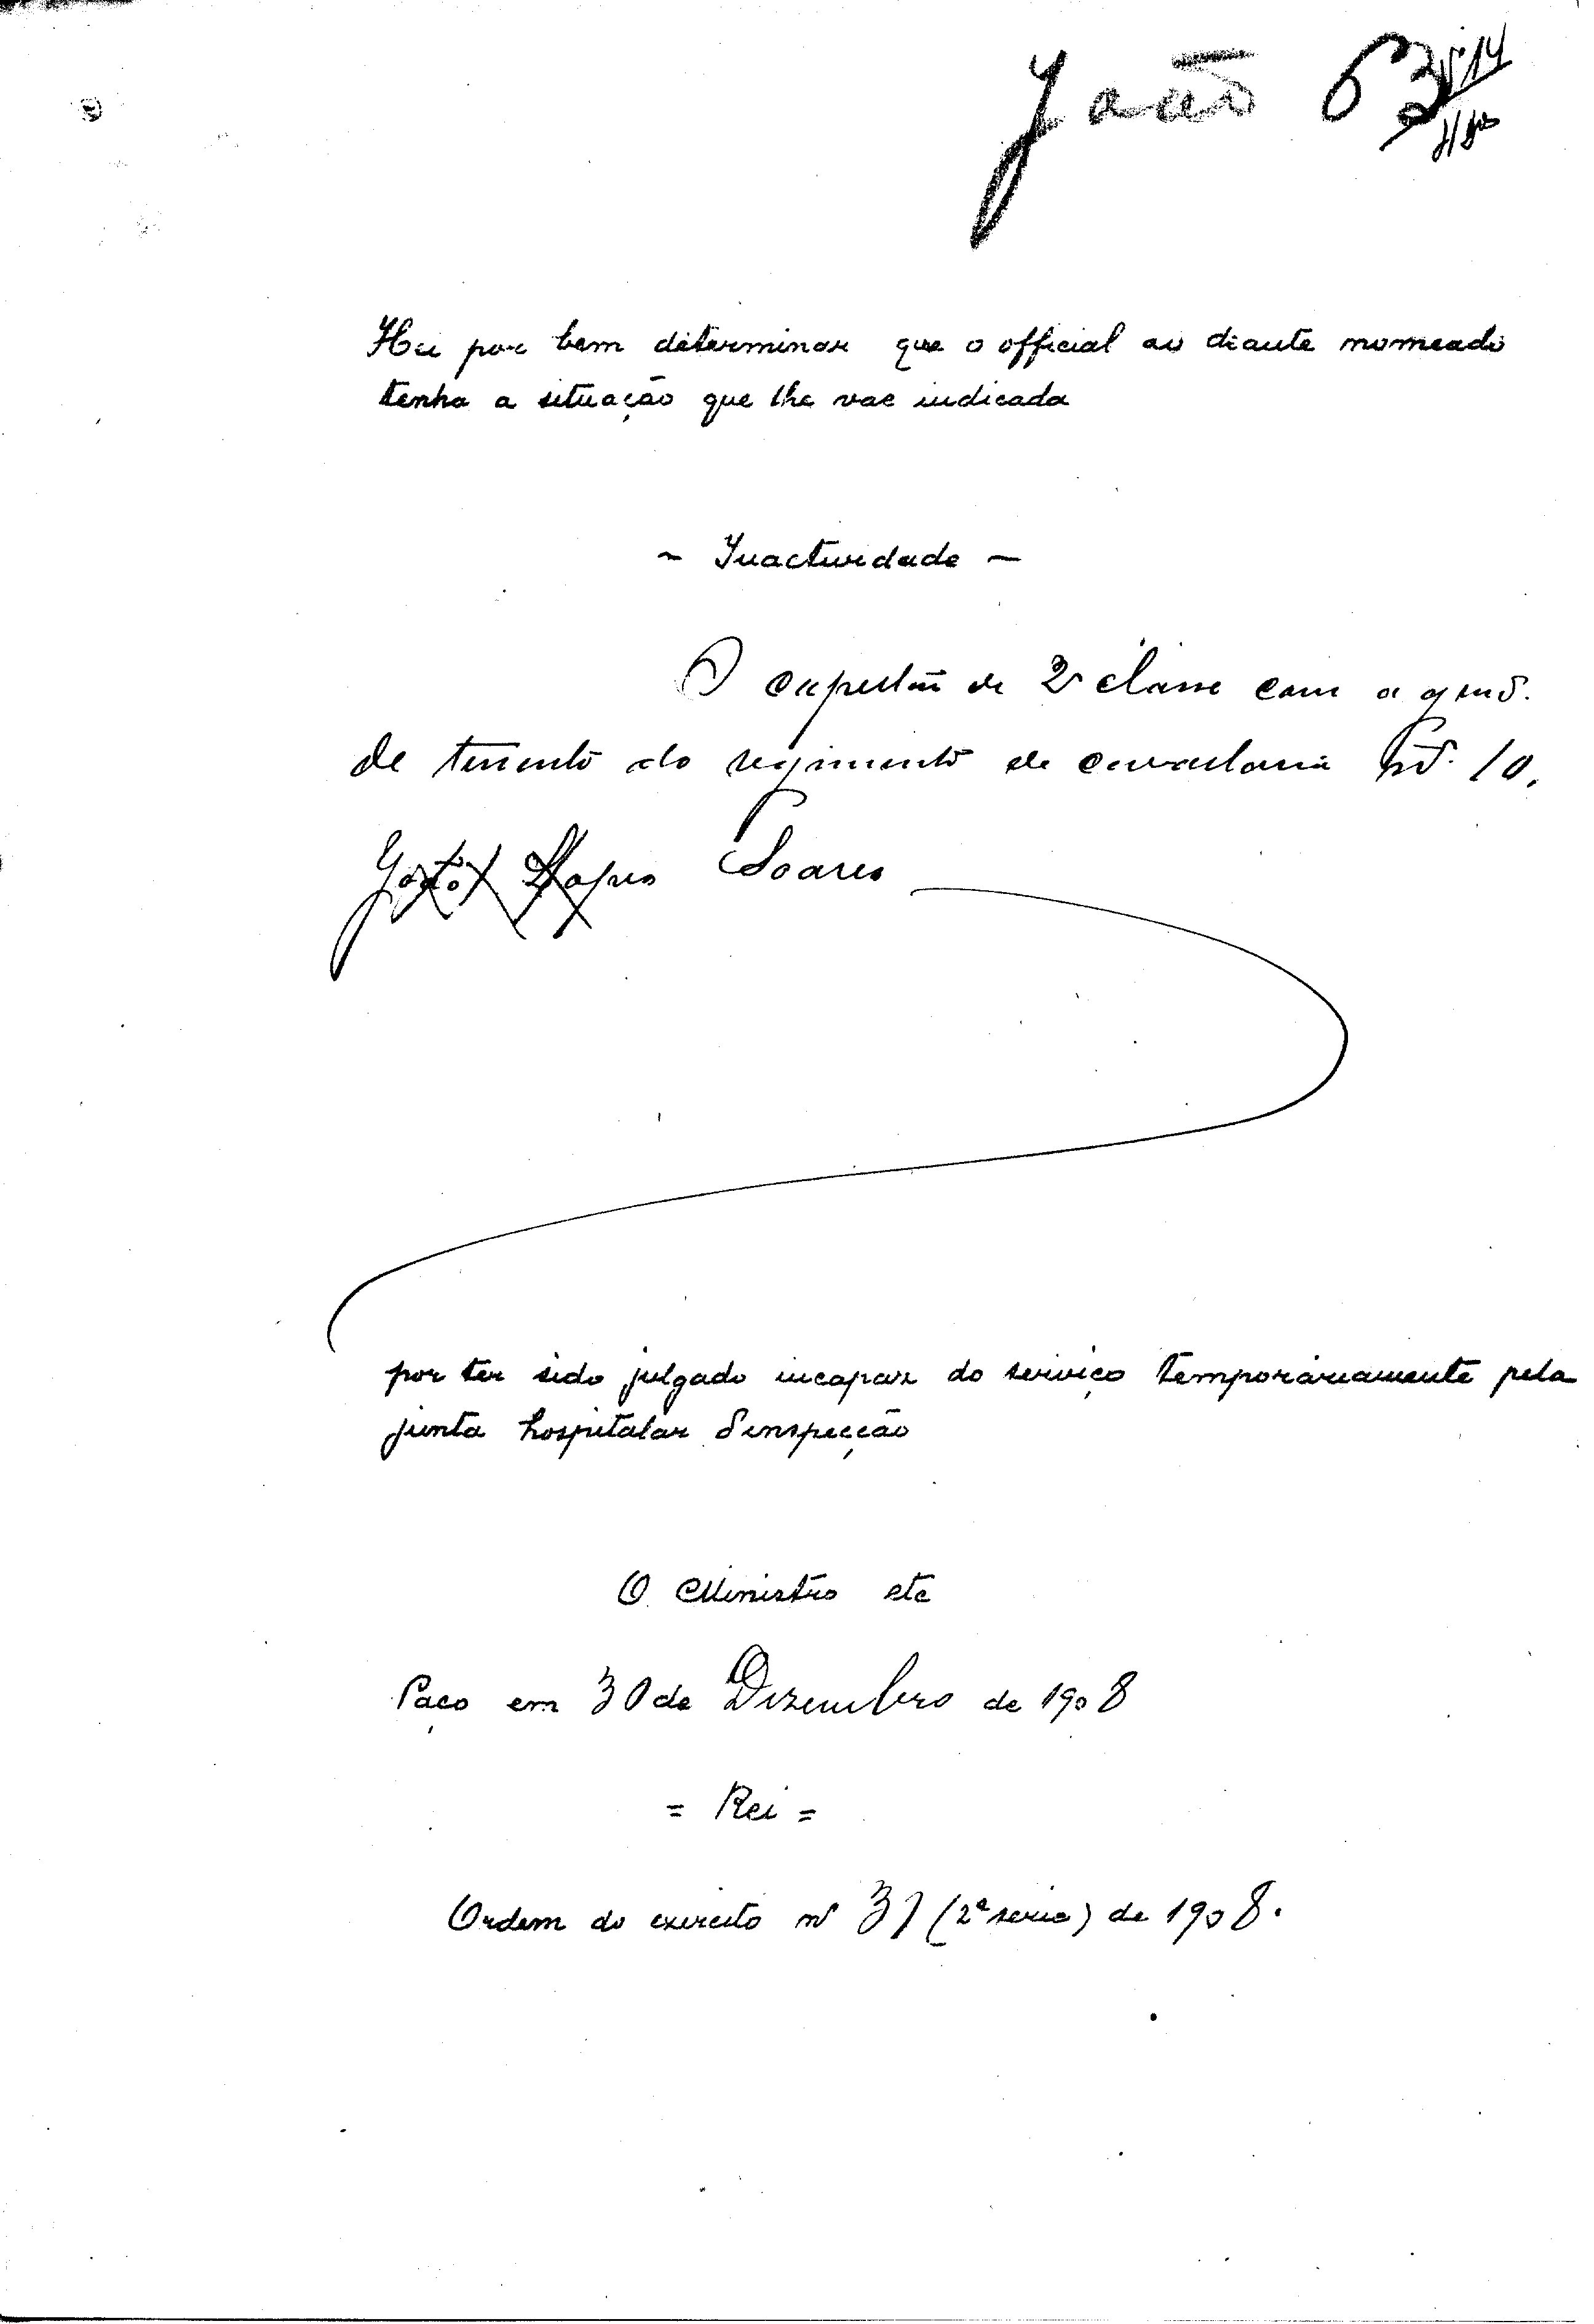 João 63
Hei por bem determinar que o official ao diante nomeado
tenha a situação que lhe vae indicada
~ Inactividade ~
O capellão de 2ª classe com a grad.
de tenente do regimento de cavallaria nº. 10,
João Lopes Soares
por ter sido julgado incapaz do serviço temporariamente pela
junta hospitalar d'inspecção
O Ministro etc
Paço em 30 de Dezembro de 1908
= Rei =
Ordem do exercito nº 31 (2ª serie) de 1908.